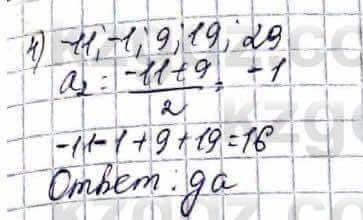 4) -11; -1; 9; 19; 29
a₂ = \frac{-11+9}{2} = -1
-11-1+9+19=16
Ответ: да